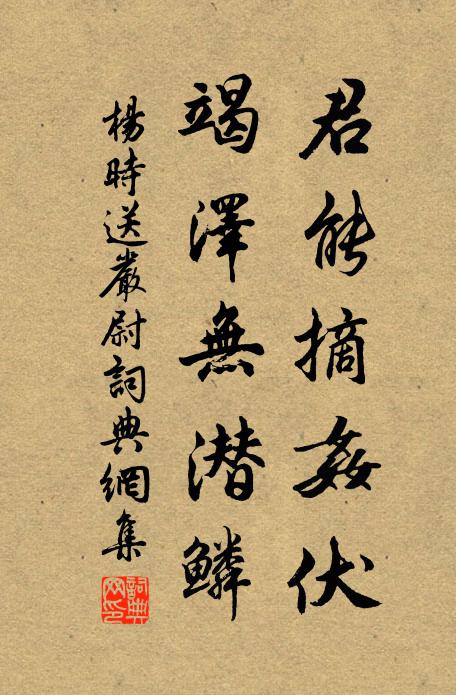 君能摘姦伏
竭澤無潛鱗
楊時送嚴尉詞典網集
詞典網印